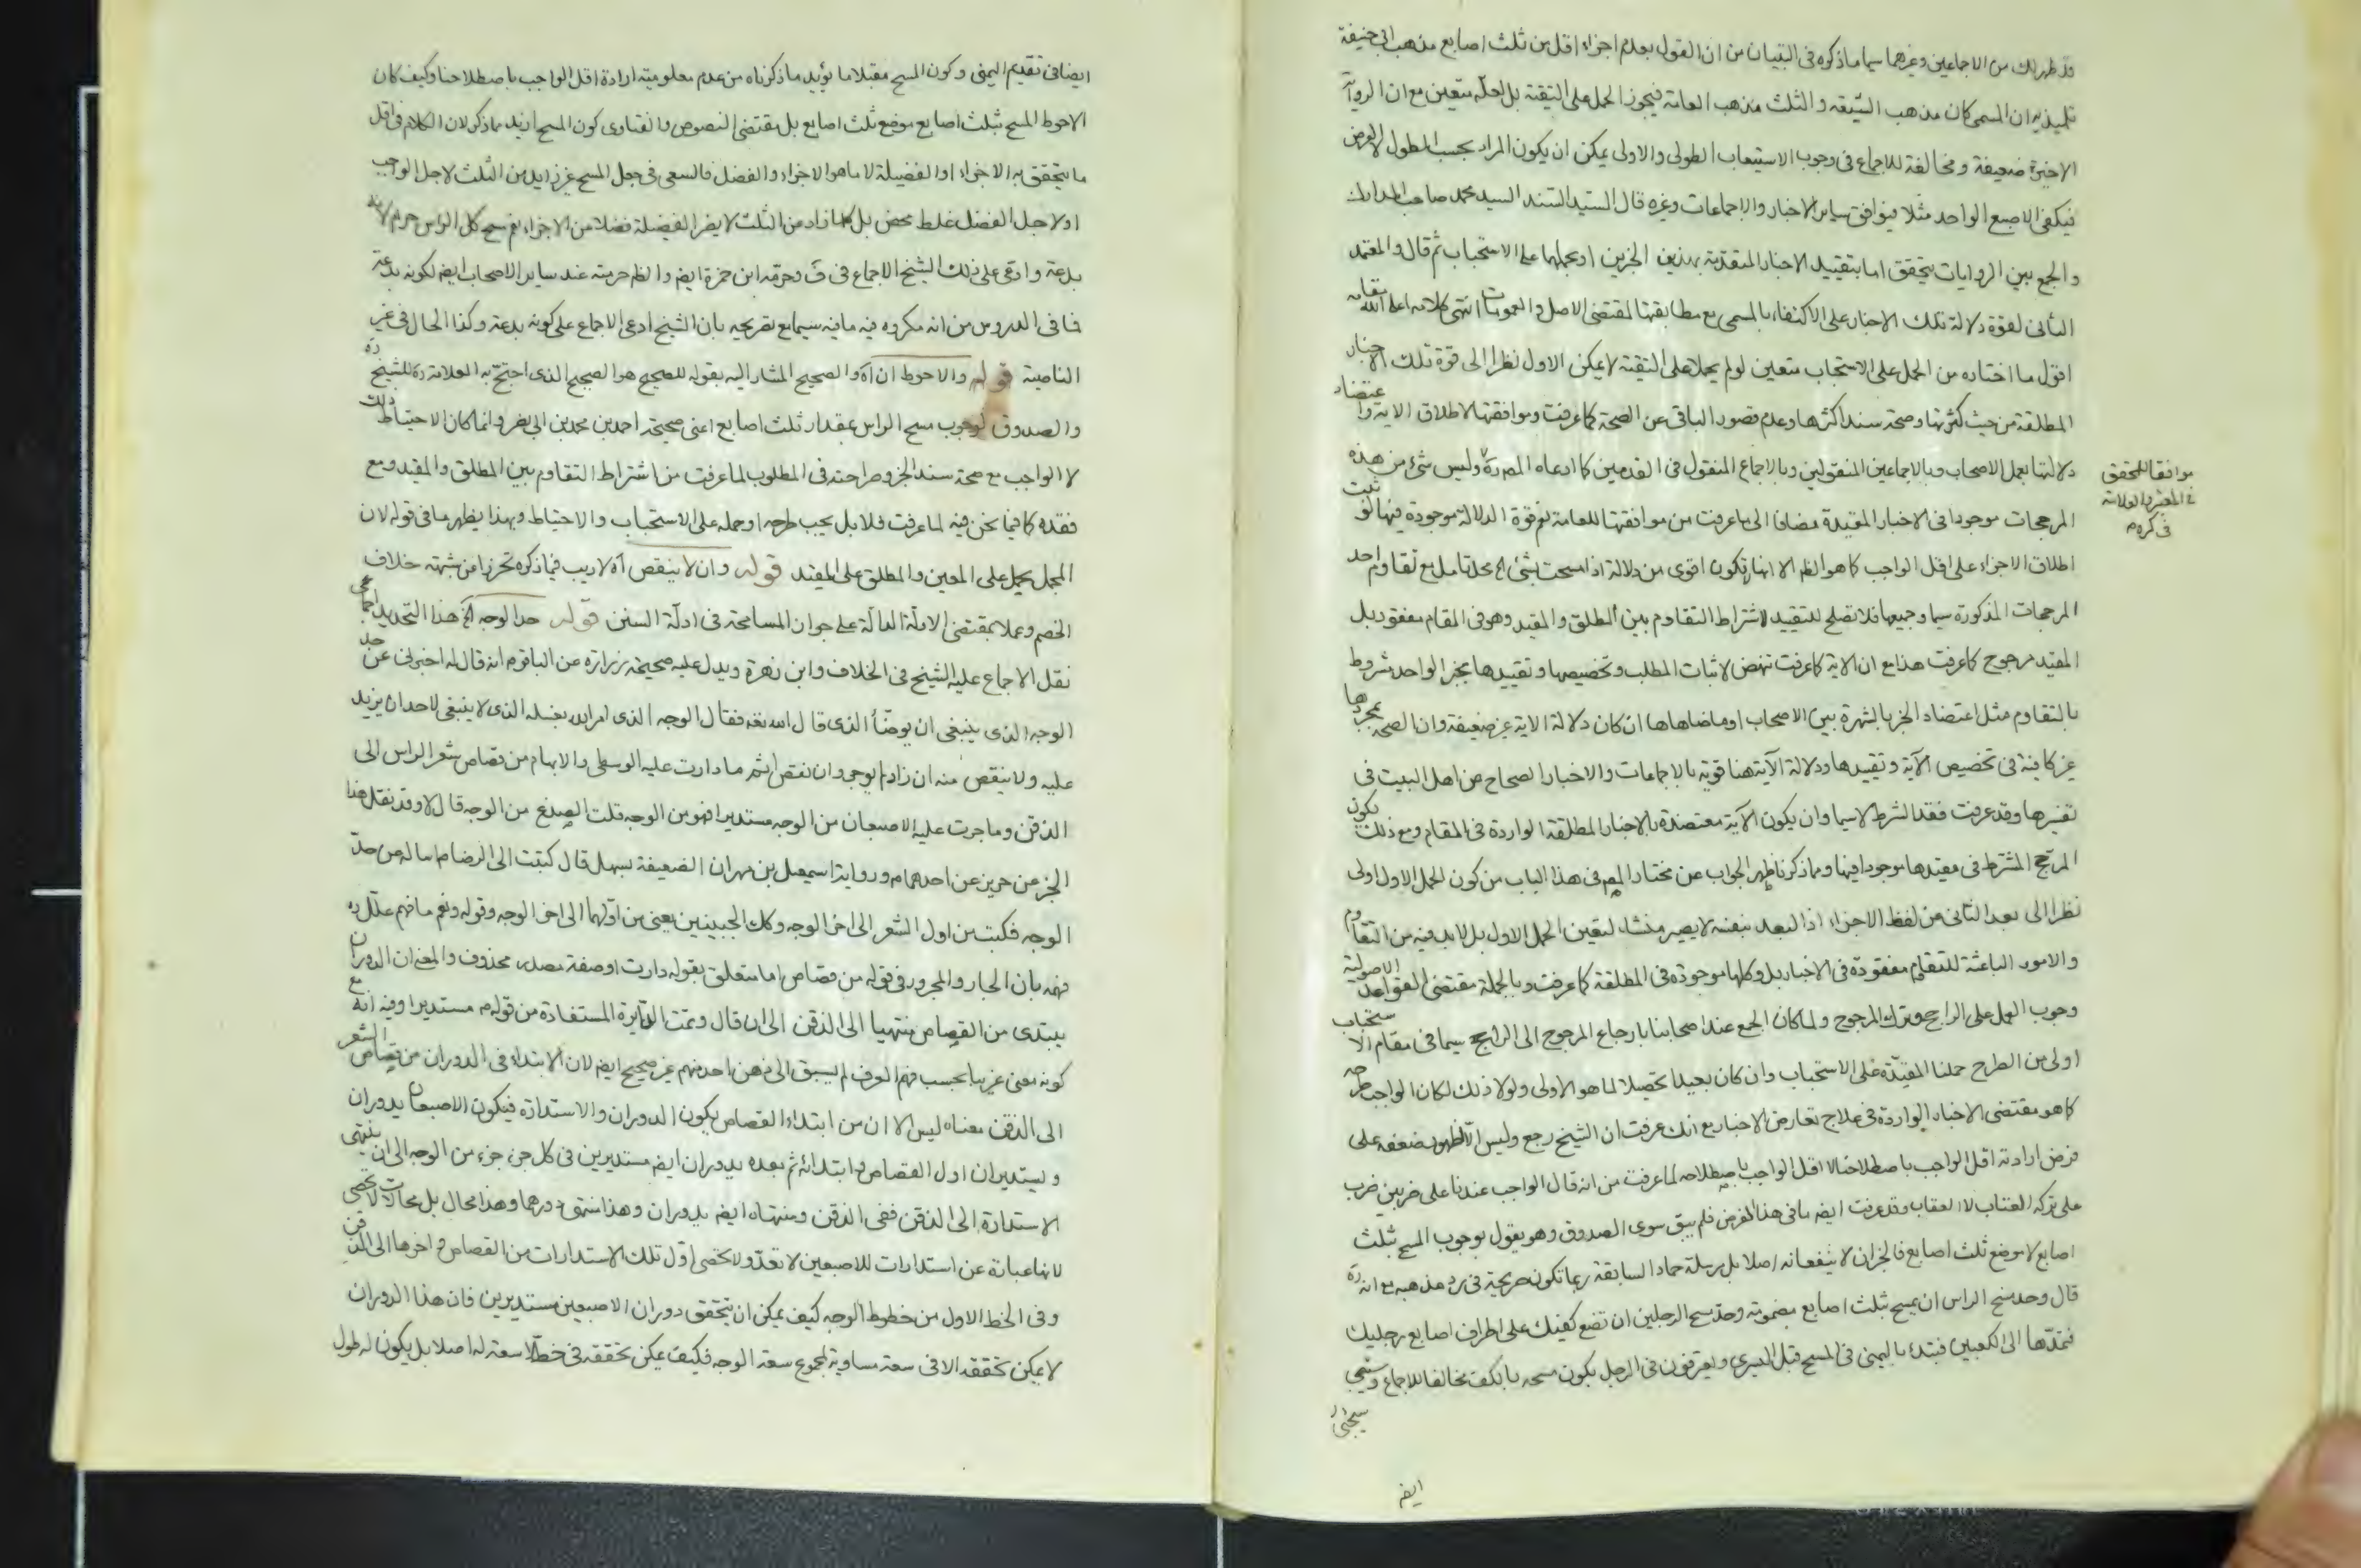 وقد ظهر لك من الاجماعين وغيرها سيما ما ذكره فى التبيان من ان القول بعدم اجزاء اقل من ثلث اصابع مذهب ابى حنيفة
تلميذيه ان المسمى كان مذهب الشيعة والثلث مذهب العامة فيجوز الحمل على التقية بل لعله متعين مع ان الرواية
الاخيرة ضعيفة ومخالفة للاجماع فى وجوب الاستيعاب الطولى والاولى يمكن ان يكون المراد بحسب الطول لا العرض
فيكفى الاصبع الواحد مثلا فيوافق ساير الاخبار والاجماعات وغيره قال السيد السند السيد محمد صاحب المدارك
والجمع بين الروايات يتحقق اما بتقييد الاخبار المتقدمة بهذين الخبرين او بحملها على الاستحباب ثم قال والمعتمد
الثانى لقوة دلالة تلك الاخبار على الاكتفاء بالمسمى مع مطابقتها لمقتضى الاصل والعمومات انتهى كلامه اعلى الله مقامه
اقول ما اختاره من الحمل على الاستحباب متعين لو لم يحمل على التقية لا يمكن الاول نظرا الى قوة تلك الاخبار
المطلقة من حيث كثرتها وصحة سند اكثرها وعدم قصور الباقى عن الصحة كما عرفت وموافقتها لاطلاق الاية واعتضاد
دلالتها بعمل الاصحاب وبالاجماعين المنقولين وبالاجماع المنقول فى القدمين كما ادعاه المص ره وليس شئ من هذه
موافقا للمحقق
فى المعتبر والعلامة
فى كره م
المرجحات موجودا فى الاخبار المقيدة مضافا الى ما عرفت من موافقتها للعامة نعم قوة الدلالة موجودة فيها لو ثبت
اطلاق الاجزاء على اقل الواجب كما هو الظم الا انها تكون اقوى من دلالة اذا مسحت بشئ الخ محل تامل مع تقاوم احد
المرجحات المذكورة سيما وجميعها فلا تصلح للتقييد لاشتراط التقاوم بين المطلق والمقيد وهو فى المقام مفقود بل
المقيد مرجوح كما عرفت هذا مع ان الاية كما عرفت تنهض لاثبات المطلب وتخصيصها وتقييدها بخبر الواحد مشروط
بالتقاوم مثل اعتضاد الخبر بالشهرة بين الاصحاب او ما ضاهاها ان كان دلالة الاية غير ضعيفة وان الصحة بمجردها
غير كافية فى تخصيص الآية وتقييدها ودلالة الآية هنا قوية بالاجماعات والاخبار الصحاح من اهل البيت فى
تفسيرها وقد عرفت فقد الشرط لا سيما وان يكون الآية معتضدة بالاخبار المطلقة الواردة فى المقام ومع ذلك يكون
المرجح المشترط فى مقيدها موجودا فيها ومما ذكرنا ظهر الجواب عن مختار المص فى هذا الباب من كون الحمل الاول اولى
نظرا الى بعد الثانى من لفظ الاجزاء اذ البعد بنفسه لا يصير منشاء لتعين الحمل الاول بل لا بد فيه من التقاوم
والامور الباعثة للتقاوم مفقودة فى الاخبار بل وكلها موجودة فى المطلقة كما عرفت وبالجملة مقتضى القواعد الاصولية
وجوب العمل على الراجح وترك المرجوح ولما كان الجمع عند اصحابنا بارجاع المرجوح الى الراجح سيما فى مقام الاستحباب
اولى من الطرح حملنا المقيدة على الاستحباب وان كان بعيدا تحصيلا لما هو الاولى ولولا ذلك لكان الواجب طرحه
كما هو مقتضى الاخبار الواردة فى علاج تعارض الاخبار مع انك عرفت ان الشيخ رجع وليس الا لظهور ضعفه على
فرض ارادته اقل الواجب باصطلاحنا لا اقل الواجب باصطلاحه لما عرفت من انه قال الواجب عندنا على ضربين ضرب
على تركه العتاب لا العقاب وقد عرفت ايضه ما فى هذا الفرض فلم يبق سوى الصدوق وهو يقول بوجوب المسح بثلث
اصابع لا موضع ثلث اصابع فالخبران لا ينفعانه اصلا بل مرسلة حماد السابقة ربما تكون صريحة فى رد مذهبه مع انه ره
قال وحد مسح الراس ان يمسح بثلث اصابع مضمومة وحد مسح الرجلين ان تضع كفيك على اطراف اصابع رجليك
فتمدها الى الكعبين فتبدء باليمنى فى المسح قبل اليسرى ويعترفون فى الرجل بكون مسحه بالكف مخالفا للاجماع وسيجئ
ايضه
ايضا فى تقديم اليمنى وكون المسح مقبلا ما يؤيد ما ذكرناه من عدم معلومية ارادة اقل الواجب باصطلاحنا وكيف كان
الاحوط المسح بثلث اصابع موضع ثلث اصابع بل مقتضى النصوص والفتاوى كون المسح ازيد مما ذكر لان الكلام فى اقل
ما يتحقق به الاجزاء او الفضيلة لا ما هو الاجزاء والفضل فالسعى فى جعل المسح غير زايد من الثلث لاجل الواجب
او لاجل الفضل غلط محض بل كلما زاد من الثلث لا يضر الفضيلة فضلا من الاجزاء نعم مسح كل الراس حرام لانه
بدعة وادعى على ذلك الشيخ الاجماع فى ف وحرمه ابن حمزة ايضه والظم حرمته عند ساير الاصحاب ايضه لكونه بدعة
فما فى الدروس من انه مكروه فيه ما فيه سيما مع تصريحه بان الشيخ ادعى الاجماع على كونه بدعة وكذا الحال فى غير
الناصية قوله والاحوط ان آه والصحيح المشار اليه بقوله للصحيح هو الصحيح الذى احتج به العلامة ره للشيخ ره
والصدوق لوجوب مسح الراس بمقدار ثلث اصابع اعنى صحيحة احمد بن محمد بن ابى نصر وانما كان الاحتياط ذلك
لا الواجب مع صحة سند الخبر وصراحته فى المطلوب لما عرفت من اشتراط التقاوم بين المطلق والمقيد ومع
فقده كما فيما نحن فيه لما عرفت فلا بل يجب طرحه او حمله على الاستحباب والاحتياط وبهذا يظهر ما فى قوله لان
المجمل يحمل على المعين والمطلق على المقيد قوله وان لا ينقص آه لا ريب فيما ذكره تحرزا عن شبهة خلاف
الخصم وعملا بمقتضى الادلة الدالة على جواز المسامحة فى ادلة السنن قوله حد الوجه الخ هذا التحديد اجماعى
نقل الاجماع عليه الشيخ فى الخلاف وابن زهرة ويدل عليه صحيحة زرارة عن الباقر م انه قال له اخبرنى عن حد
الوجه الذى ينبغى ان يوضأ الذى قال الله تعه فقال الوجه الذى امر الله بغسله الذى لا ينبغى لاحد ان يزيد
عليه ولا ينقص منه ان زاد لم يوجر وان نقص اثم ما دارت عليه الوسطى والابهام من قصاص شعر الراس الى
الذقن وما جرت عليه الاصبعان من الوجه مستديرا فهو من الوجه قلت الصدغ من الوجه قال لا وقد نقل هذا
الخبر عن حريز عن احدهما م ورواية اسمعيل بن مهران الضعيفة بسهل قال كتبت الى الرضا م اساله عن حد
الوجه فكتب من اول الشعر الى اخر الوجه وكك الجبينين يعنى من اولهما الى اخر الوجه وقوله ونعم ما فهم علل ره
فهمه بان الجار والمجرور فى قوله من قصاص اما متعلق بقوله دارت او صفة مصدر محذوف والمعنى ان الدوران
يبتدى من القصاص منتهيا الى الذقن الى ان قال وتمت الدايرة المستفادة من قوله م مستديرا وفيه انه مع
كونه معنى غريبا بحسب فهم العرف لم يسبق الى ذهن احد منهم غير صحيح ايضه لان الابتداء فى الدوران من قصاص الشعر
الى الذقن معناه ليس الا ان من ابتداء القصاص يكون الدوران والاستدارة فيكون الاصبعان يدوران
ويستديران اول القصاص وابتدائه ثم بعده يدوران ايضه مستديرين فى كل جزء جزء من الوجه الى ان ينتهى
الاستدارة الى الذقن ففى الذقن ومنتهاه ايضه يدوران وهذا منتهى دورهما وهذا محال بل محالات لا تحصى
لانها عبارة عن استدارات للاصبعين لا تعد ولا تحصى اول تلك الاستدارات من القصاص واخرها الى الذقن
وفى الخط الاول من خطوط الوجه كيف يمكن ان يتحقق دوران الاصبعين مستديرين فان هذا الدوران
لا يمكن تحققه الا فى سعة مساوية لمجموع سعة الوجه فكيف يمكن تحققه فى خط لا سعة له اصلا بل يكون له طول